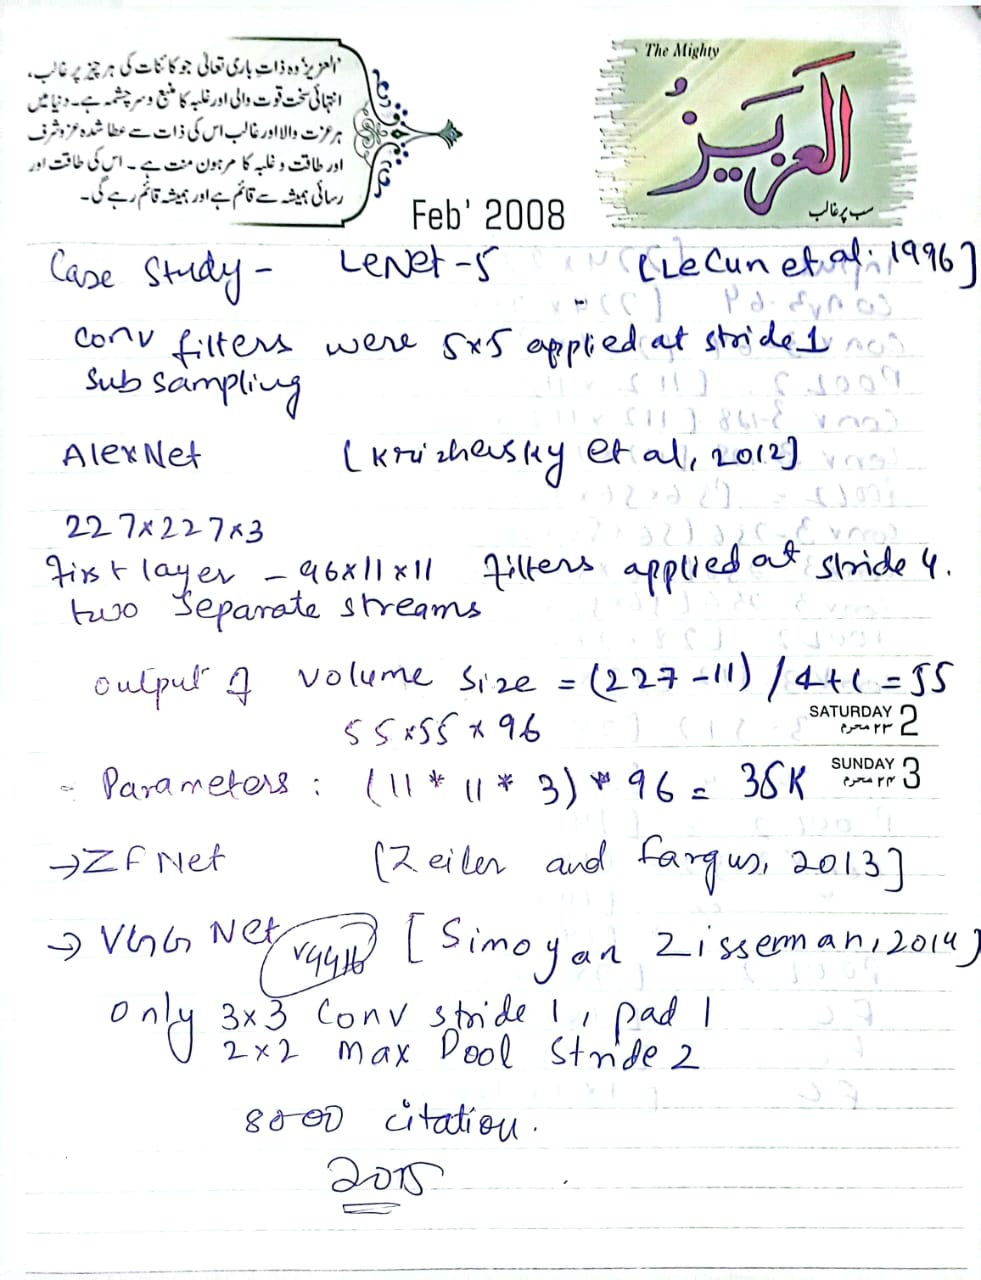 العزیز وہ ذات باری تعالی جو کائنات کی ہر چیز پر غالب،
انتہائی سخت قوت والی اور غلبہ کا منبع و سرچشمہ ہے۔ دنیا میں
ہر عزت والا اور غالب اس کی ذات سے عطا شدہ عز و شرف
اور طاقت و غلبہ کا مرہون منت ہے۔ اس کی طاقت اور
رسائی ہمیشہ سے قائم ہے اور ہمیشہ قائم رہے گی۔
The Mighty
العزیز
سب پر غالب
Feb' 2008
Case Study - LeNet-5 [LeCun et al. 1996]
Conv filters were 5x5 applied at stride 1
Sub sampling
AlexNet [Krizhevsky et al, 2012]
227x227x3
First layer - 96x11x11 filters applied at stride 4.
two separate streams
output of volume size = (227-11)/4+1 = 55
55x55x96
SATURDAY 2
۲۳ محرم
- Parameters : (11 * 11 * 3) * 96 = 35K
SUNDAY 3
۲۴ محرم
→ ZFNet [Zeiler and Fargus, 2013]
→ VGG Net VGG16 [Simoyan Zisserman, 2014]
Only 3x3 Conv stride 1, pad 1
2x2 Max Pool Stride 2
8000 citation.
2015